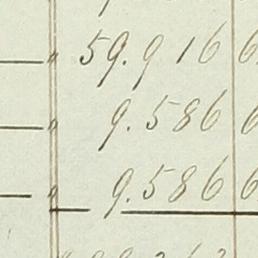 " 59.916
" 9.586
" 9.586